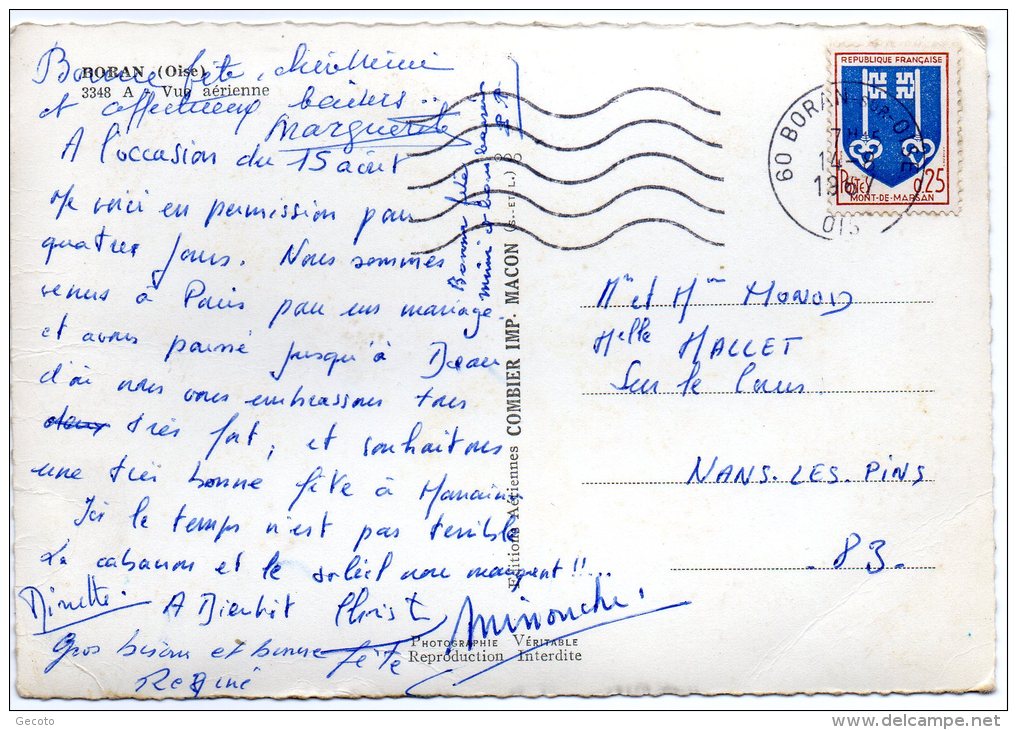 BORAN (Oise)
3348 A - Vue aérienne
Bonne fête, chère Mimi
et affectueux baisers..
Marguerite
A l'occasion du 15 août
Me voici en permission pour
quatre jours. Nous sommes
venus à Paris pour un mariage
et avons poussé jusqu'à Beau
d'où nous vous embrassons tous
très fort, et souhaitons
une très bonne fête à
Ici le temps n'est pas terrible
Le cabanon et le soleil nous manquent !!...
Ninette.
A Bientôt Christ
Minouche.
Gros bisous et bonne fête
Régine
Bonne fête
mimi et bons baisers
Editions Aériennes COMBIER IMP. MACON (S.-ET-L.)
PHOTOGRAPHIE VÉRITABLE
Reproduction Interdite
REPUBLIQUE FRANÇAISE
POSTES
0,25
MONT-DE-MARSAN
60 BORAN-SUR-OISE
7H45
14-8
1967
OIS
Mr et Mme MONOD
Melle MALLET
Sur le Cours
NANS-LES-PINS
.83.
Gecoto
www.delcampe.net